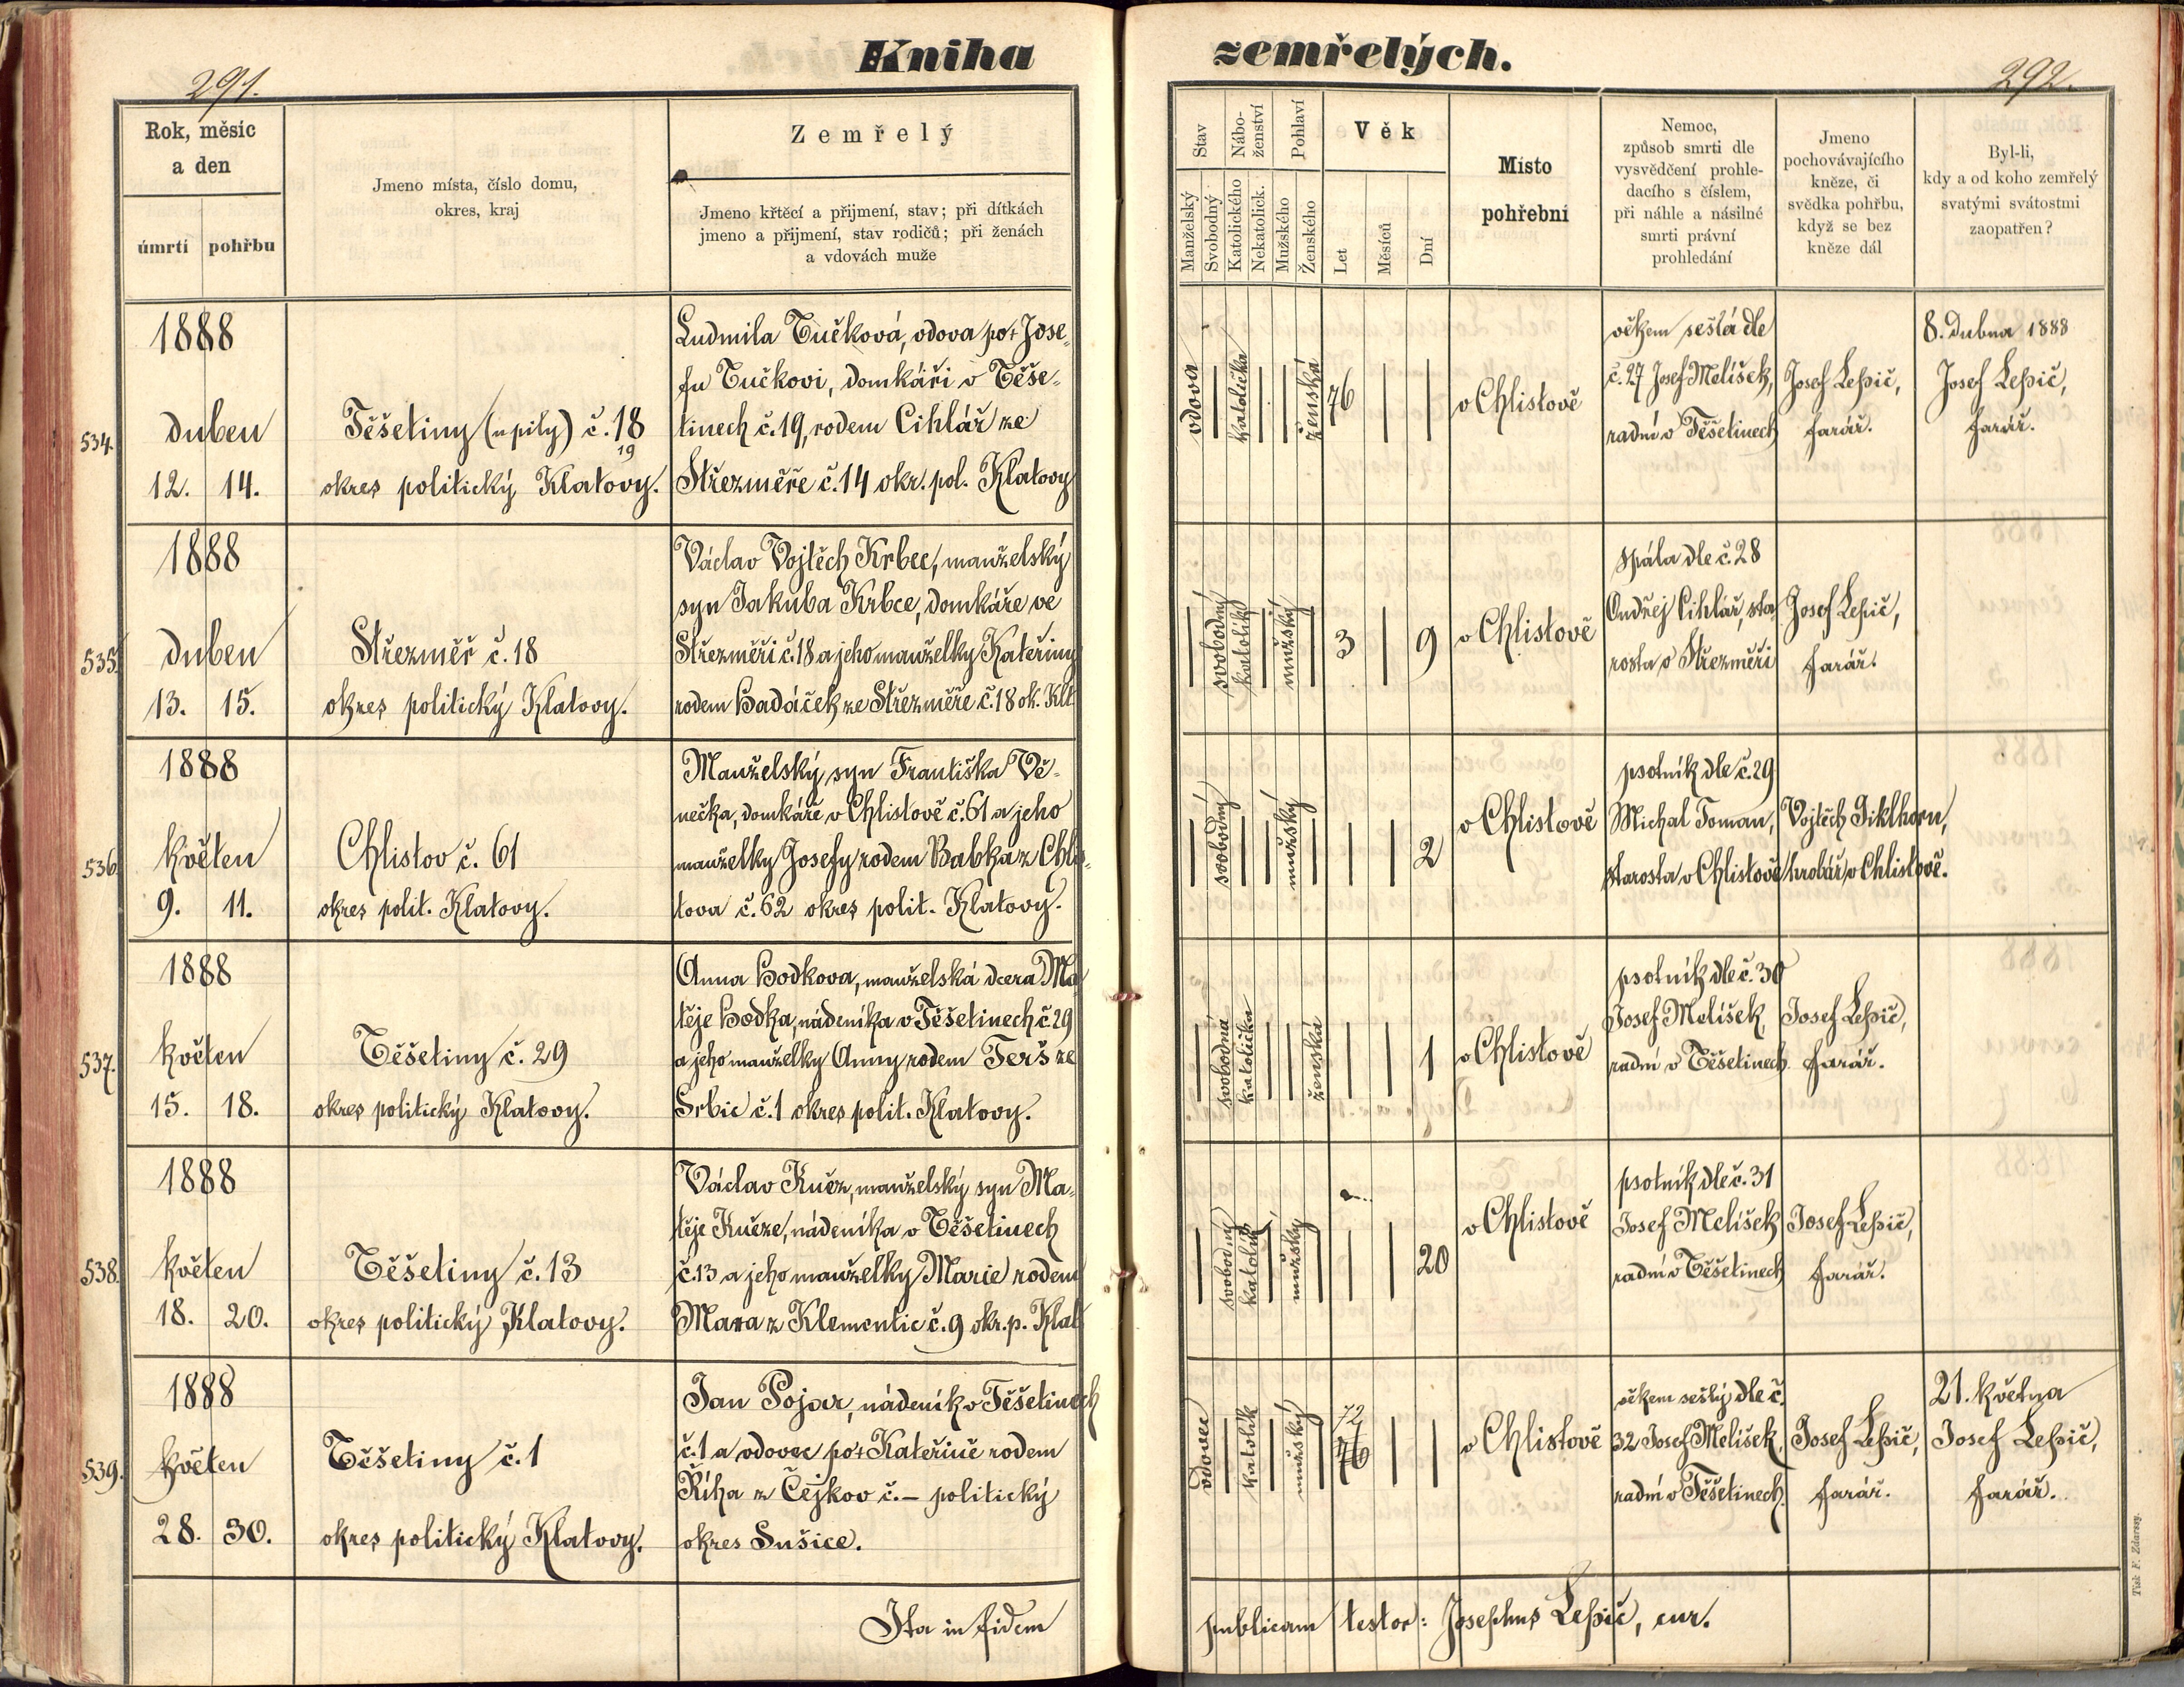 Kniha
291.
Rok, měsíc
a den
úmrtí
pohřbu
Jmeno místa, číslo domu,
okres, kraj
Zemřelý
Jmeno křtěcí a přijmení, stav; při dítkách
jmeno a přijmení, stav rodičů; při ženách
a vdovách muže
534.
1888
duben
12. 14.
Těšetiny (u pily) č. 18
19
okres politický Klatovy.
Ludmila Tučková, vdova po + Jose-
fu Tučkovi, domkáři v Těše-
tinech č. 19, rodem Cihlář ze
Střezměře č. 14 okr. pol. Klatovy
535.
1888
duben
13. 15.
Střezměř č. 18
okres politický Klatovy.
Václav Vojtěch Krbec, manželský
syn Jakuba Krbce, domkáře ve
Střezměři č. 18 a jeho manželky Kateřiny
rodem Hadáček ze Střezměře č. 18 ok. Klt
536.
1888
květen
9. 11.
Chlistov č. 61
okres polit. Klatovy.
Manželský syn Františka Vě-
nečka, domkáře v Chlistově č. 61 a jeho
manželky Josefy rodem Babka z Chlis-
tova č. 62 okres polit. Klatovy.
537.
1888
květen
15. 18.
Těšetiny č. 29
okres politický Klatovy.
Anna Hodkova, manželská dcera Ma
těje Hodka, nádeníka v Těšetinech č. 29
a jeho manželky Anny rodem Terš ze
Srbic č. 1 okres polit. Klatovy.
538.
1888
květen
18. 20.
Těšetiny č. 13
okres politický Klatovy.
Václav Kučz, manželský syn Ma-
těje Kučze, nádeníka v Těšetinech
č. 13 a jeho manželky Marie rodem
Mara z Klementic č. 9 okr. p. Klat
539.
1888
květen
28. 30.
Těšetiny č. 1
okres politický Klatovy.
Jan Pojar, nádeník v Těšetinech
č. 1 a vdovec po + Kateřině rodem
Říha z Čejkov č. – politický
okres Sušice.
Ita in fidem
zemřelých.
292.
Stav
Manželský
Svobodný
Nábo-
ženství
Katolického
Nekatolick.
Pohlaví
Mužského
Ženského
Věk
Let
Měsíců
Dní
Místo
pohřební
Nemoc,
způsob smrti dle
vysvědčení prohle-
dacího s číslem,
při náhle a násilné
smrti právní
prohledání
Jmeno
pochovávajícího
kněze, či
svědka pohřbu,
když se bez
kněze dál
Byl-li,
kdy a od koho zemřelý
svatými svátostmi
zaopatřen?
vdova
katolička
ženská
76
v Chlistově
věkem sešlá dle
č. 27 Josef Melíšek,
radní v Těšetinech
Josef Lepič,
farář.
8. dubna 1888
Josef Lepič,
farář.
svobodný
katolík
mužský
3
9
v Chlistově
spála dle č. 28
Ondřej Cihlář, sta-
rosta v Střezměři
Josef Lepič,
farář.
svobodný
mužský
2
v Chlistově
psotník dle č. 29
Michal Toman,
starosta v Chlistově
Vojtěch Giklhorn,
hrobář v Chlistově.
svobodná
katolička
ženská
1
v Chlistově
psotník dle č. 30
Josef Melíšek,
radní v Těšetinech
Josef Lepič,
farář.
svobodný
katolík
mužský
20
v Chlistově
psotník dle č. 31
Josef Melíšek
radní v Těšetinech
Josef Lepič,
farář.
vdovec
katolík
mužský
72
76
v Chlistově
věkem sešlý dle č.
32 Josef Melíšek,
radní v Těšetinech.
Josef Lepič,
farář.
21. května
Josef Lepič,
farář.
publicam testor: Josephus Lepič, cur.
Tisk F. Zdarssy.